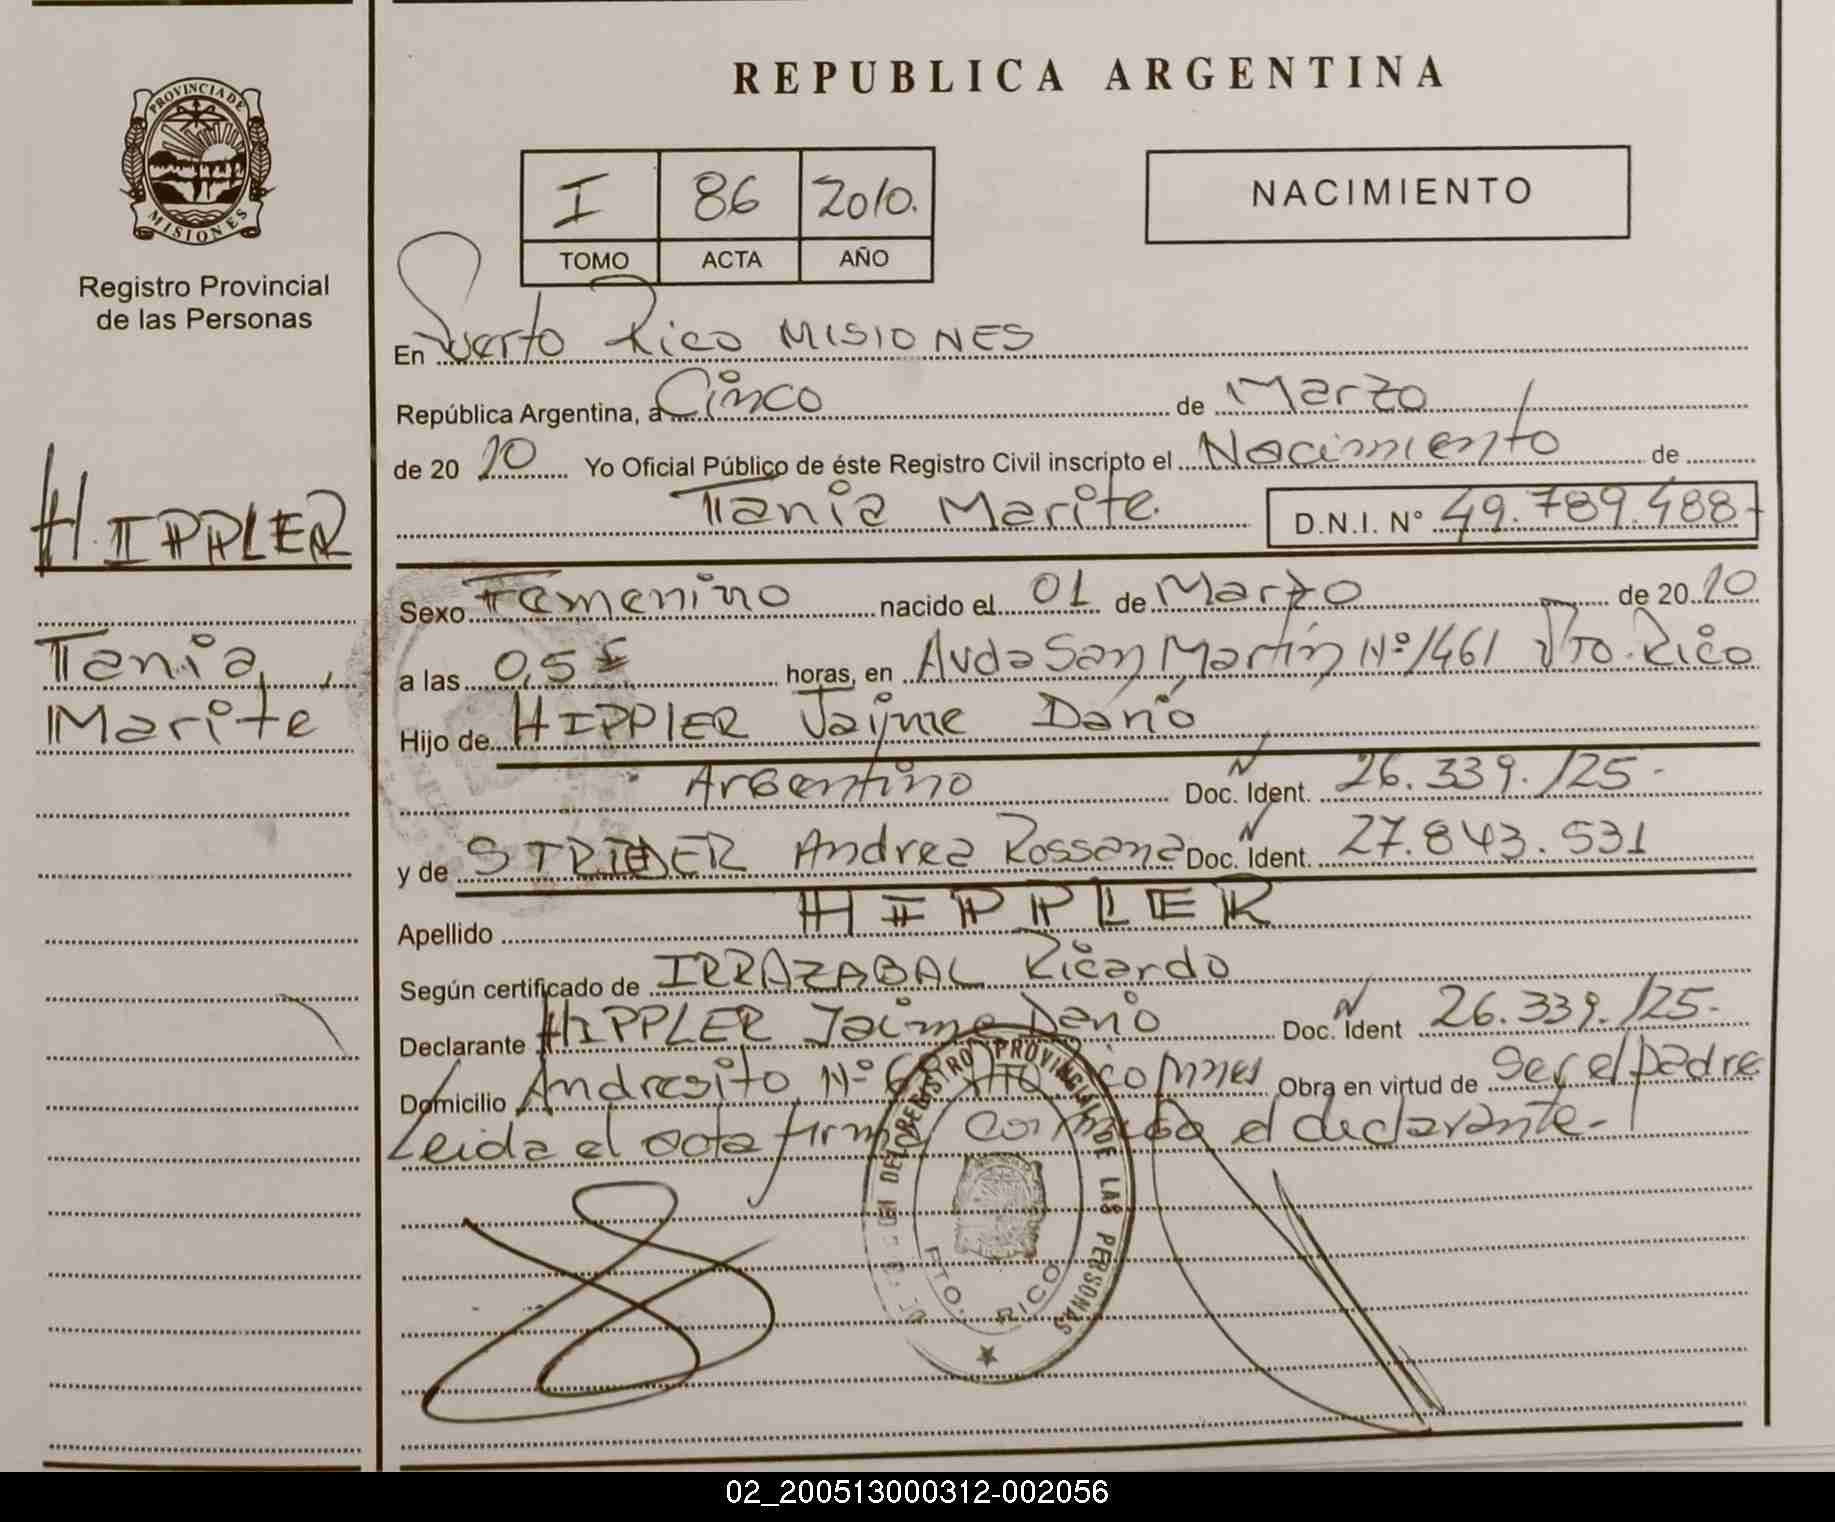 PROVINCIA DE
MISIONES
Registro Provincial
de las Personas
HIPPLER
Tania
Marite
REPUBLICA ARGENTINA
I 86 2010.
TOMO ACTA AÑO
NACIMIENTO
En Puerto Rico MISIONES
República Argentina, a Cinco de Marzo
de 20 10 Yo Oficial Público de éste Registro Civil inscripto el Nacimiento de
Tania Marite. D.N.I. N° 49.789.488-
Sexo Femenino nacido el 01 de Marzo de 20 10
a las 0,5 horas, en Avda San Martín N° 1461 Pto. Rico
Hijo de HIPPLER Jaime Darío
Argentino Doc. Ident. 26.339.125-
y de STRIEDER Andrea Rossana Doc. Ident. 27.843.531
Apellido HIPPLER
Según certificado de IRRAZABAL Ricardo
Declarante HIPPLER Jaime Dario Doc. Ident 26.339.125-
Domicilio Andresito N° Obra en virtud de ser el padre
Leida el acta firma conmigo el declarante-
REGISTRO PROVINCIAL DE LAS PERSONAS
PTO. RICO
02_200513000312-002056